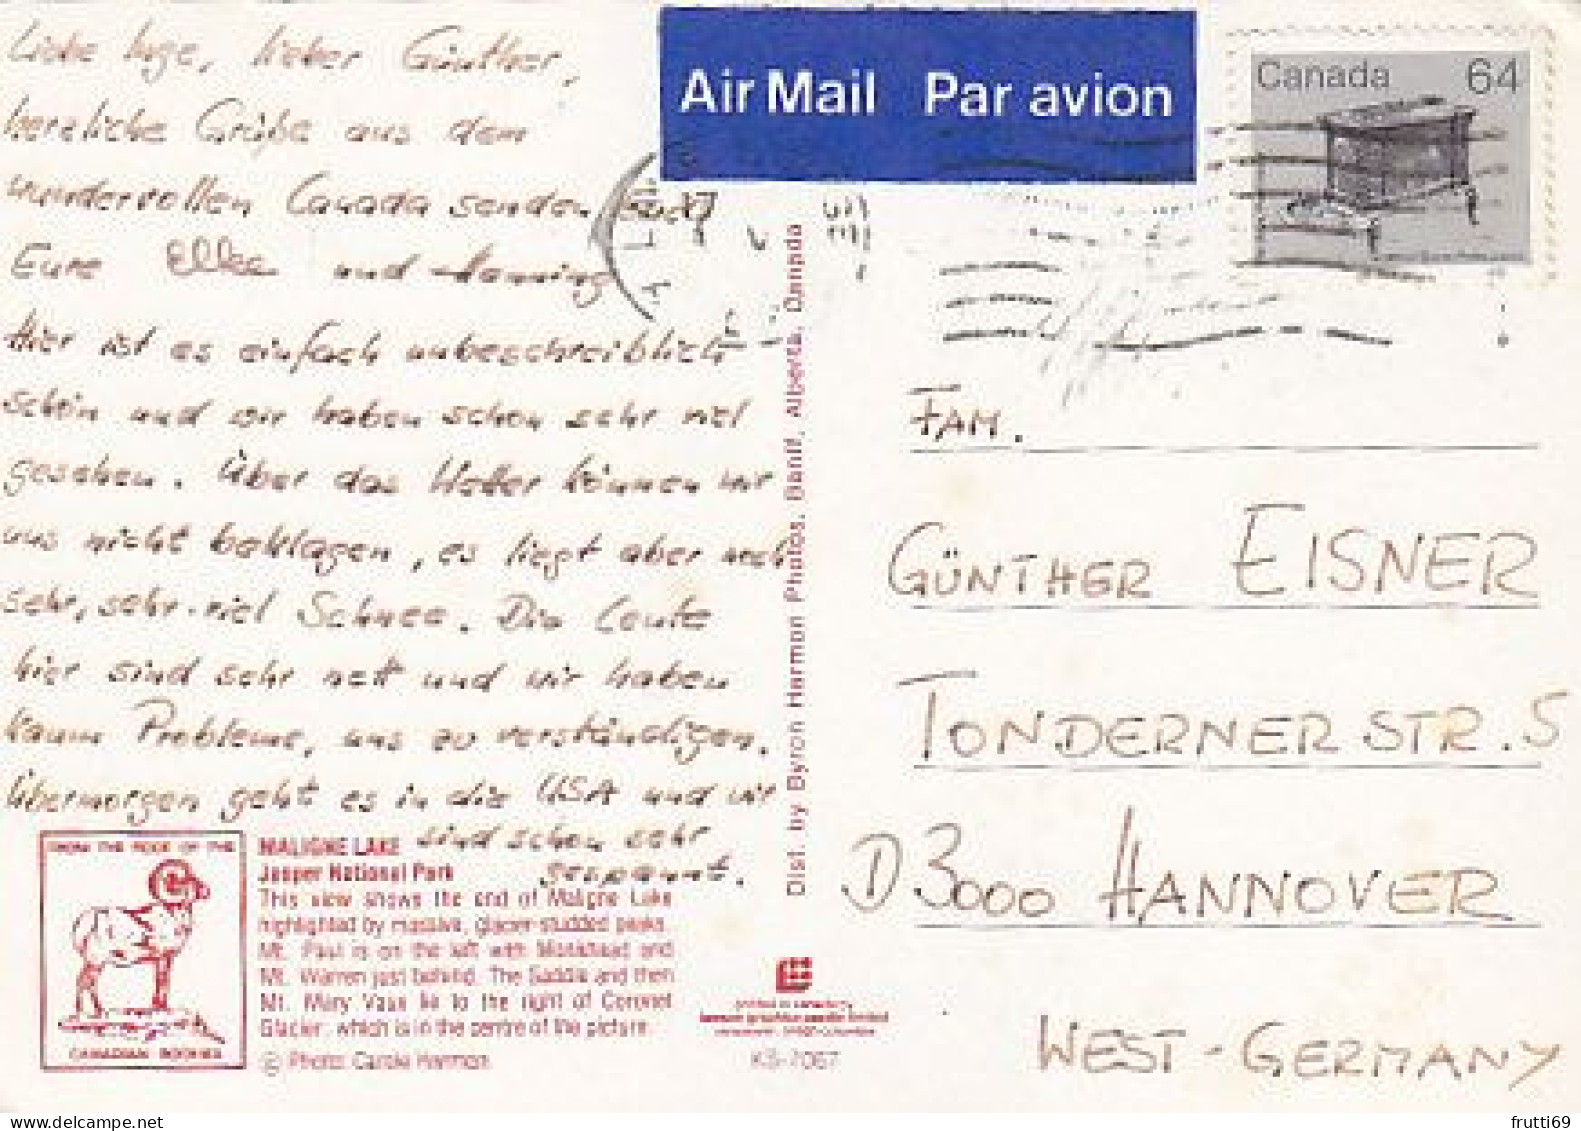 Liebe Inge, lieber Günther,
herzliche Grüße aus dem
wundervollen Canada senden Euch
Eure Elke und Henning
Hier ist es einfach unbeschreiblich
schön und wir haben schon sehr viel
gesehen. Über das Wetter können wir
uns nicht beklagen, es liegt aber noch
sehr, sehr viel Schnee. Die Leute
hier sind sehr nett und wir haben
kaum Probleme, uns zu verständigen.
Übermorgen geht es in die USA und wir
sind schon sehr
gespannt.
FROM THE ROOF OF THE
CANADIAN ROCKIES
MALIGNE LAKE
Jasper National Park
This view shows the end of Maligne Lake
highlighted by massive, glacier-studded peaks.
Mt. Paul is on the left with Monkhead and
Mt. Warren just behind. The Saddle and then
Mt. Mary Vaux lie to the right of Coronet
Glacier, which is in the centre of the picture.
© Photo: Carole Harmon
Dist. by Byron Harmon Photos, Banff, Alberta, Canada
KS-7067
Air Mail Par avion
Canada 64
FAM.
GÜNTHER EISNER
TONDERNER STR. 5
D 3000 HANNOVER
WEST-GERMANY
frutti69